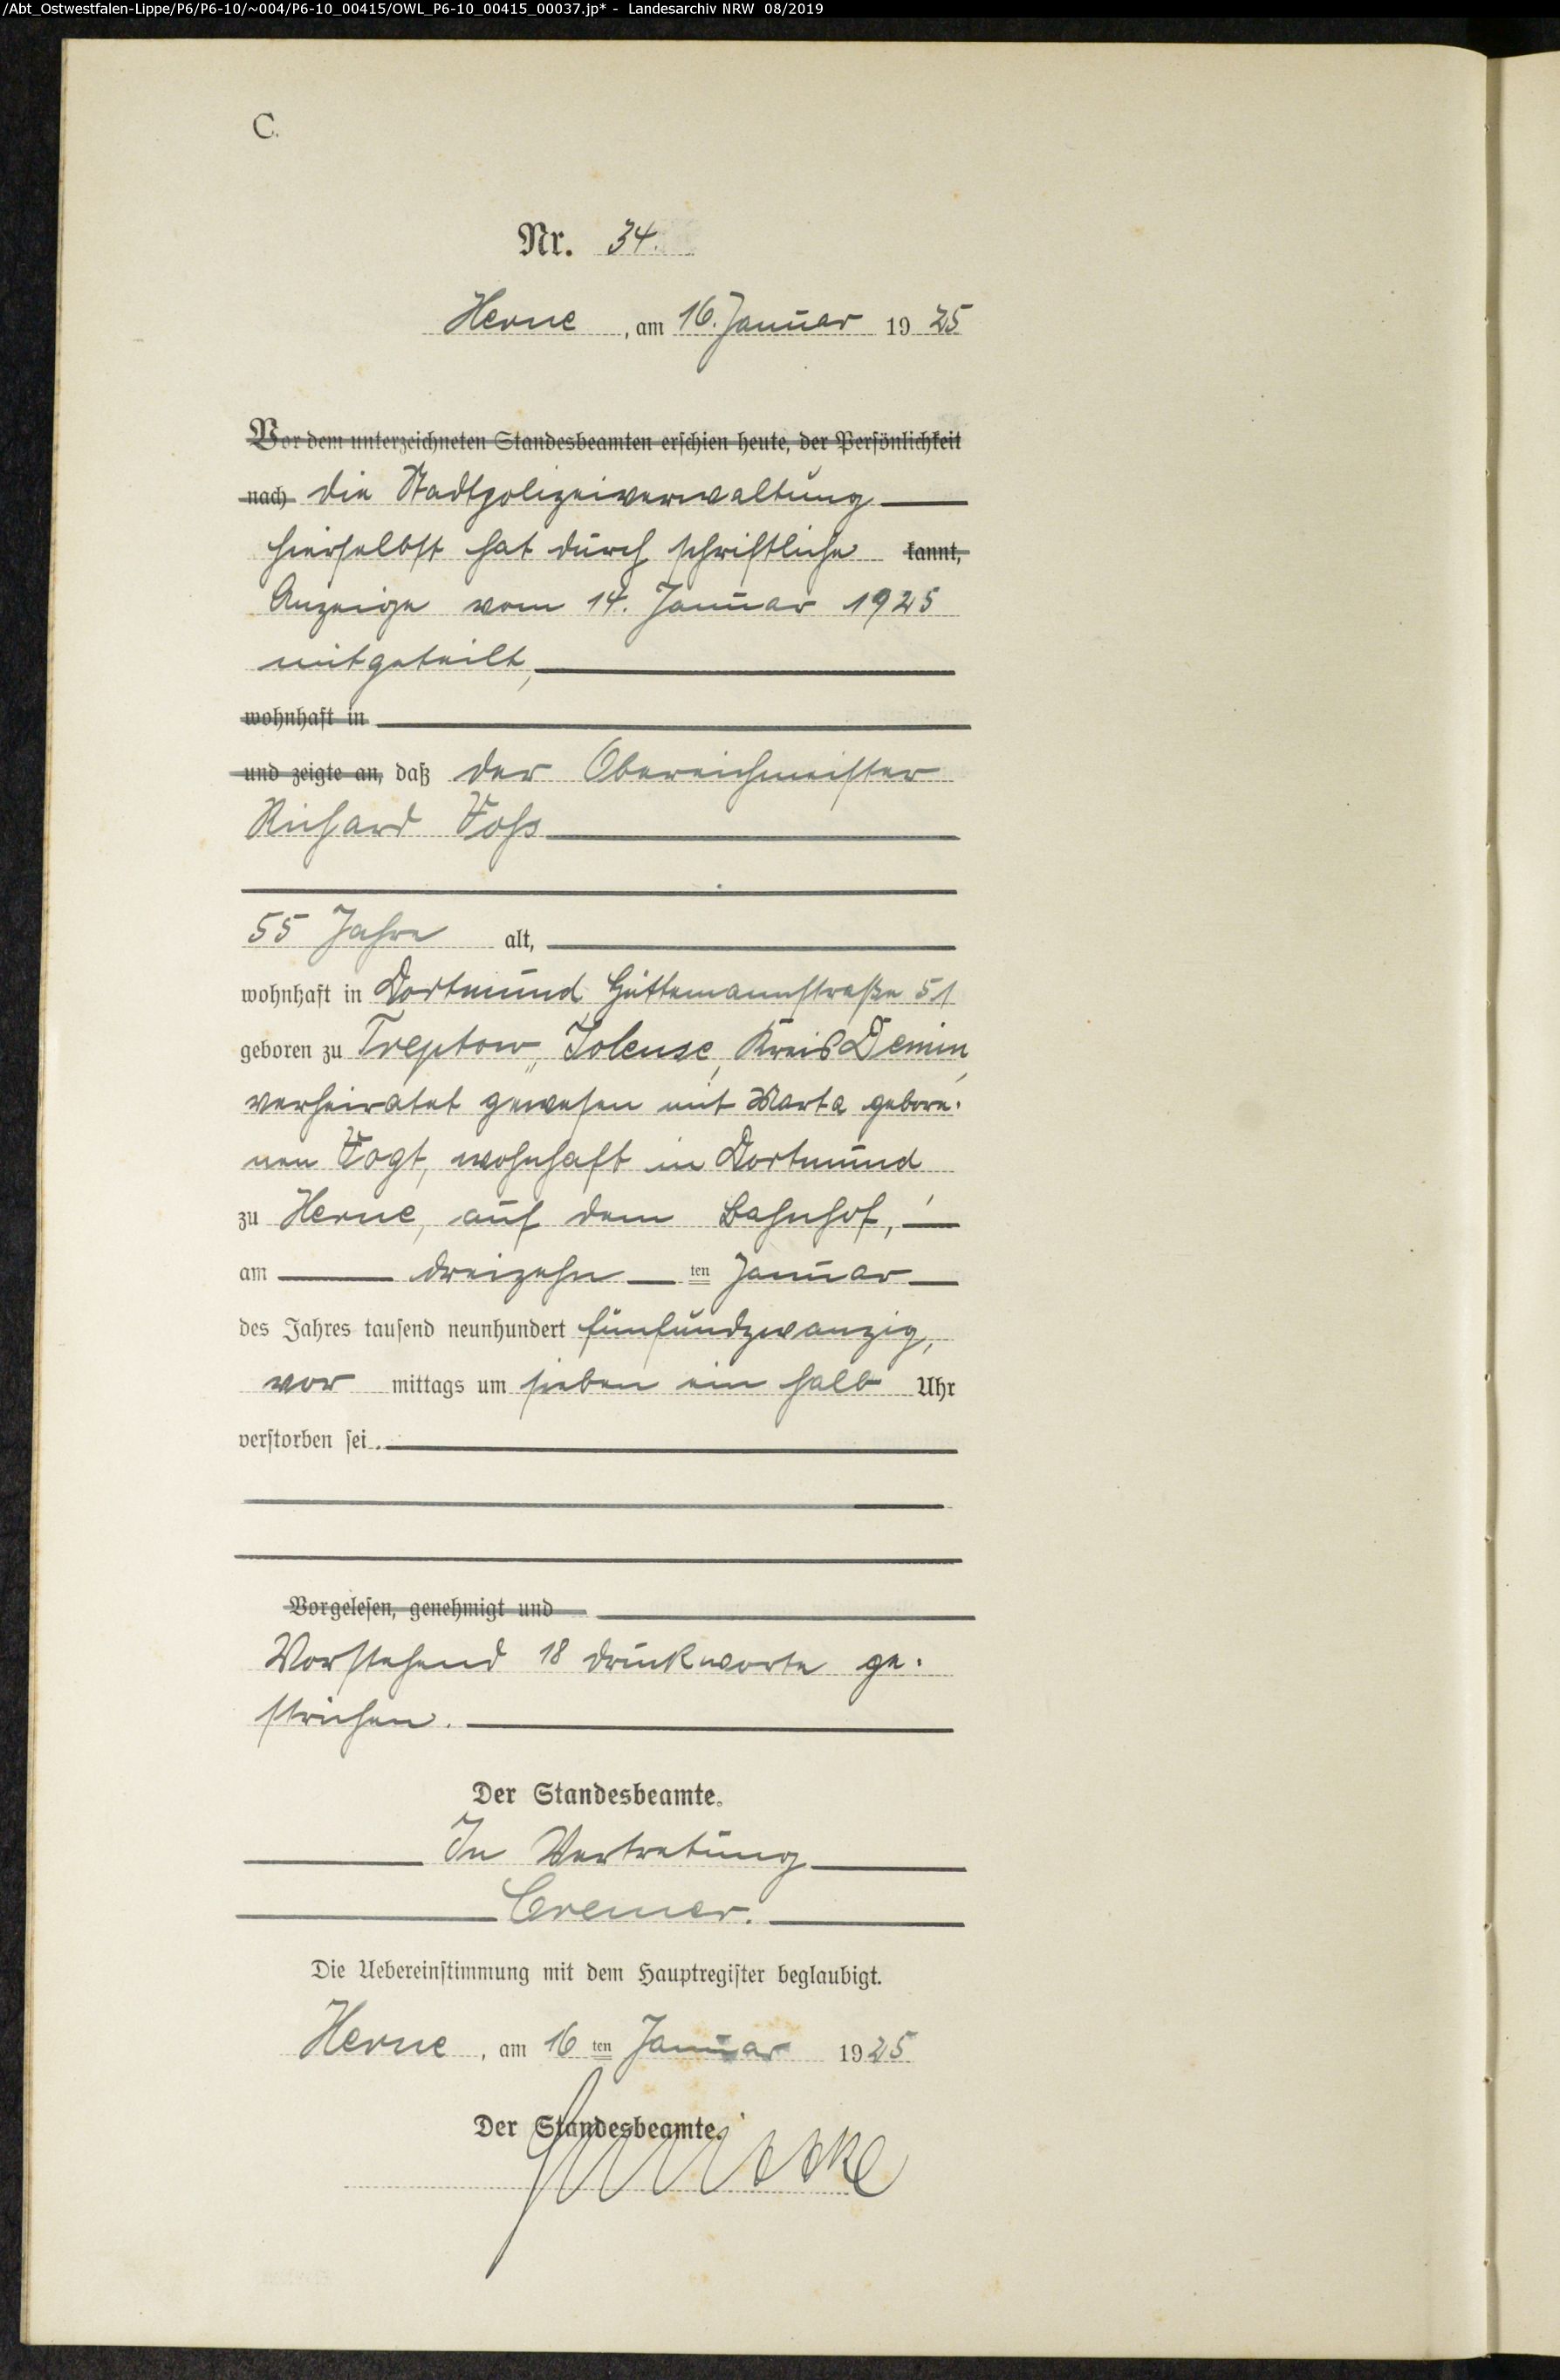 /Abt_Ostwestfalen-Lippe/P6/P6-10/~004/P6-10_00415/OWL_P6-10_00415_00037.jp* - Landesarchiv NRW 08/2019
C.
Nr. 34.
Herne, am 16. Januar 1925
Vor dem unterzeichneten Standesbeamten erschien heute, der Persönlichkeit
nach die Stadtpolizeiverwaltung
hierselbst hat durch schriftliche kannt,
Anzeige vom 14. Januar 1925
mitgeteilt,
wohnhaft in
und zeigte an, daß der Obereichmeister
Richard Voss
55 Jahre alt,
wohnhaft in Dortmund, 51
geboren zu Treptow, Kreis Demin,
verheiratet gewesen mit Marta gebore-
nen Vogt, wohnhaft in Dortmund
zu Herne, auf dem Bahnhof,
am dreizehn ten Januar
des Jahres tausend neunhundert fünfundzwanzig,
vor mittags um sieben ein halb Uhr
verstorben sei.
Vorgelesen, genehmigt und
Vorstehend 18 Druckworte ge-
strichen.
Der Standesbeamte.
In Vertretung
Cremer.
Die Uebereinstimmung mit dem Hauptregister beglaubigt.
Herne, am 16 ten Januar 1925
Der Standesbeamte.